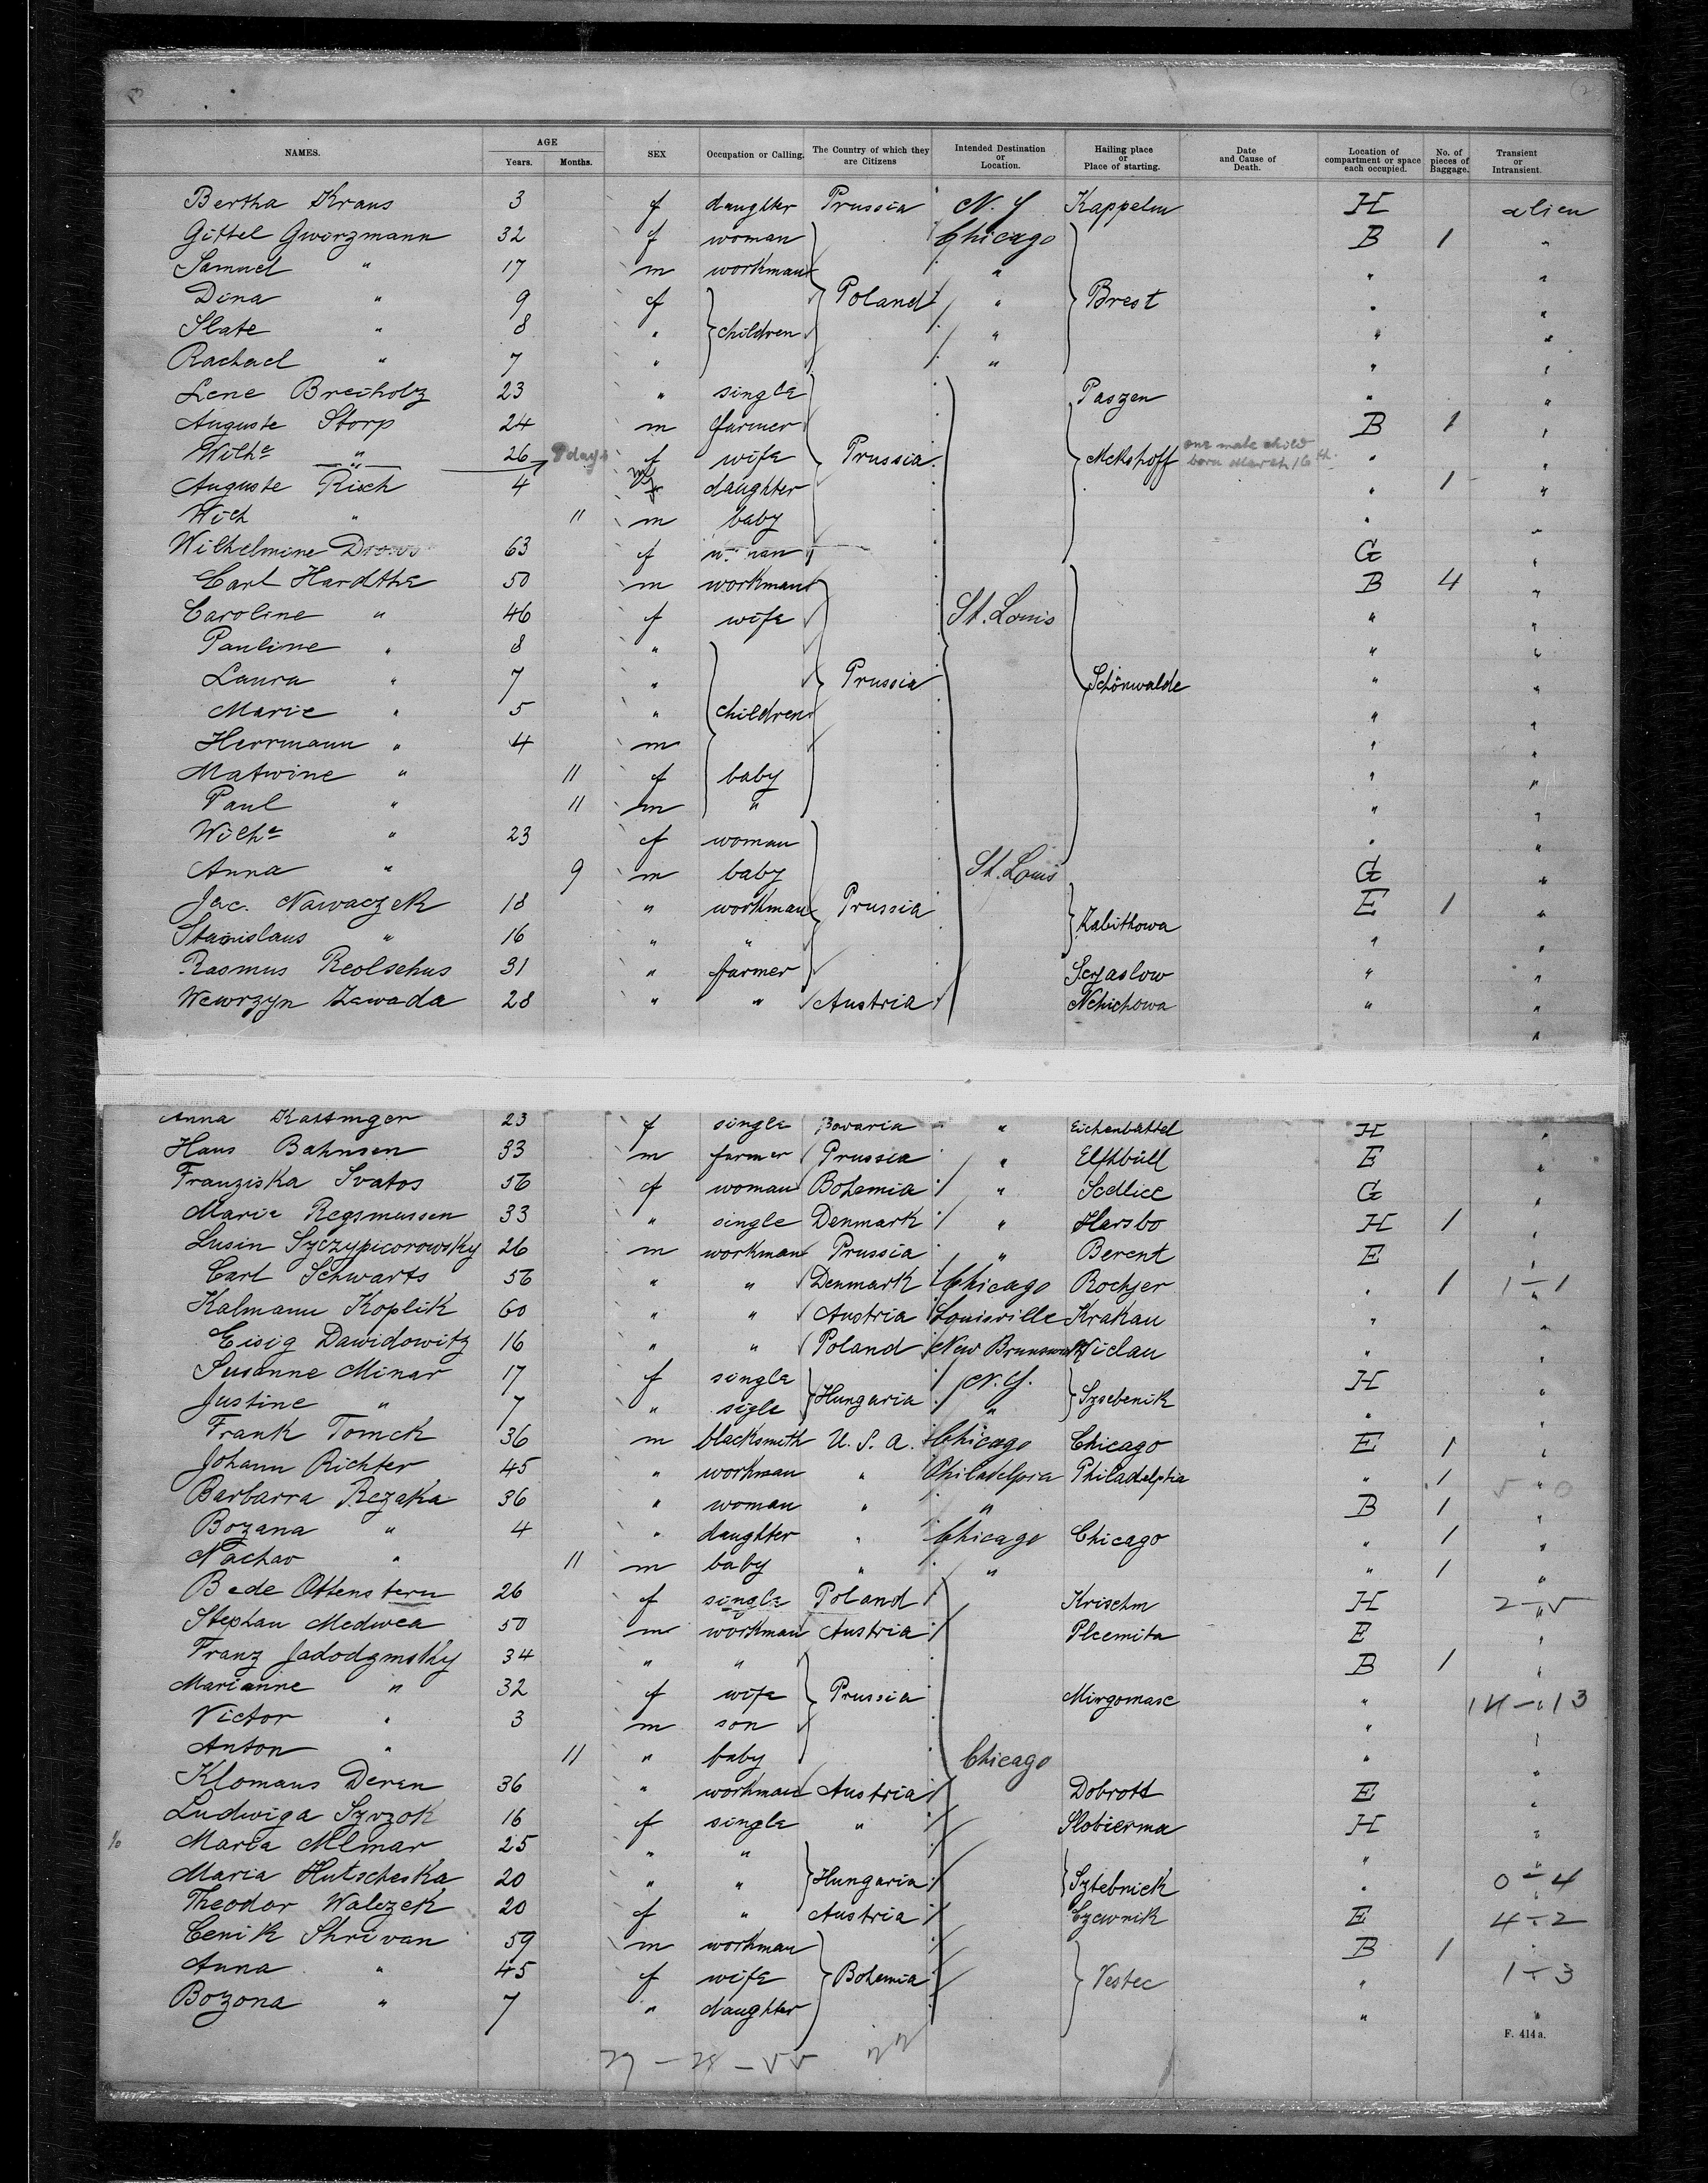 NAMES. AGE SEX Occupation or Calling. The Country of which they are Citizens Intended Destination or Location. Hailing place or Place of starting. Date and Cause of Death. Location of compartment or space each occupied. No. of pieces of Baggage. Transient or Intransient.
Years. Months.
Bertha Kraus 3 f daughter Prussia N. Y Kappeln H alien
Gittel Gwirzmann 32 f woman Chicago B 1 "
Samuel " 17 m workman " " "
Dina " 9 f Poland " Brest " "
Slate " 8 " children " " "
Rachael " 7 " " " "
Lene Breiholz 23 " single Paszen " "
Auguste Storp 24 m farmer B 1 "
Wilhe " 26 9 days f wife Prussia Mekshoff one male child born March 16th. " "
Auguste Risch 4 daughter " 1 "
Wilh " 11 m baby " "
Wilhelmine 63 f G "
Carl Hardthe 50 m workman B 4 "
Caroline " 46 f wife St. Louis " "
Pauline " 8 " " "
Laura " 7 " Prussia Schönwalde " "
Marie " 5 " children " "
Herrmann " 4 m " "
Matwine " 11 f baby " "
Paul " 11 m " " "
Wilhe " 23 f woman " "
Anna " 9 m baby St. Louis G "
Jac. Nawaczek 18 " workman Prussia E 1 "
Stanislaus " 16 " " Zabithowa " "
Rasmus Reolsehus 31 " farmer Seryaslow " "
Wawrzyn Zawada 28 " " Austria Nchichowa " "
"
Anna Kattinger 23 f single Bavaria " Eichenbüttel H "
Hans Bahnsen 33 m farmer Prussia " Elfhbüll E "
Franziska Svatos 56 f woman Bohemia " Sedlice G "
Maria Regsmussen 33 " single Denmark " Harsbo H 1 "
Lusin Szczypicorowsky 26 m workman Prussia " Berent E "
Carl Schwarts 56 " " Denmark Chicago Rochjer " 1 1-1
Kalmann Koplik 60 " " Austria Louisville Krakau " "
Eisig Dawidowitz 16 " " Poland New Brunswick Widau " "
Susanne Minar 17 f single N. Y. H "
Justine " 7 " sigle Hungaria " Szsebenik " "
Frank Tomck 36 m blacksmith U. S. A. Chicago Chicago E 1 "
Johann Richter 45 " workman " Philadelpia Philadelphia " 1 "
Barbarra Rezaka 36 " woman " " B 1 "
Bozana " 4 " daughter " Chicago Chicago " 1 "
Nachav " 11 m baby " " " 1 "
Bede Ottenstern 26 f single Poland Krischm H
Stephan Medwea 50 m workman Austria Pleemita E "
Franz Jadodzmsky 34 " " B 1 "
Marianne " 32 f wife Prussia Mirgomasc " 14-13
Victor " 3 m son " "
Anton " 11 " baby Chicago " "
Klomans Deren 36 " workman Austria Dobrott E "
Ludwiga Szvzok 16 f single " Slobierma H "
Maria Mlmar 25 " " " "
Maria Hutscheska 20 " " Hungaria Sztebnick " 0-4
Theodor Walczek 20 f " Austria Czewnik E 4-2
Cenik Shrivan 59 m workman B 1 "
Anna " 45 f wife Bohemia Vestec " 1-3
Bozona " 7 " daughter " "
F. 414a.